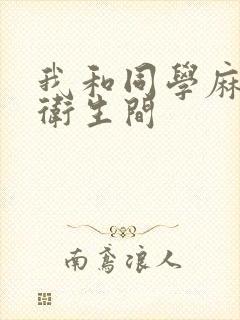 我和同學麻
衛生間
南鸢浪人